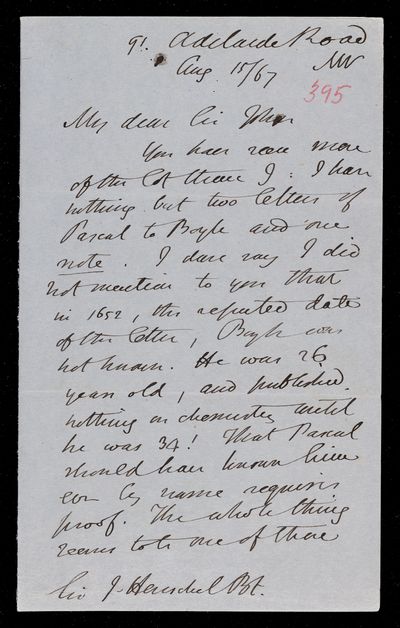 91. Adelaide Road
Aug 15/67 NW
395
My dear Sir John
You have seen more
of the lot than I: I have
nothing but two letters of
Pascal to Boyle and one
note. I dare say I did
not mention to you that
in 1652, the reputed date
of the letter, Boyle was
not known. He was 26
years old, and published
nothing on chemistry until
he was 34! That Pascal
should have known him
even by name requires
proof. The whole thing
seems to be one of those
Sir J. Herschel Bt.